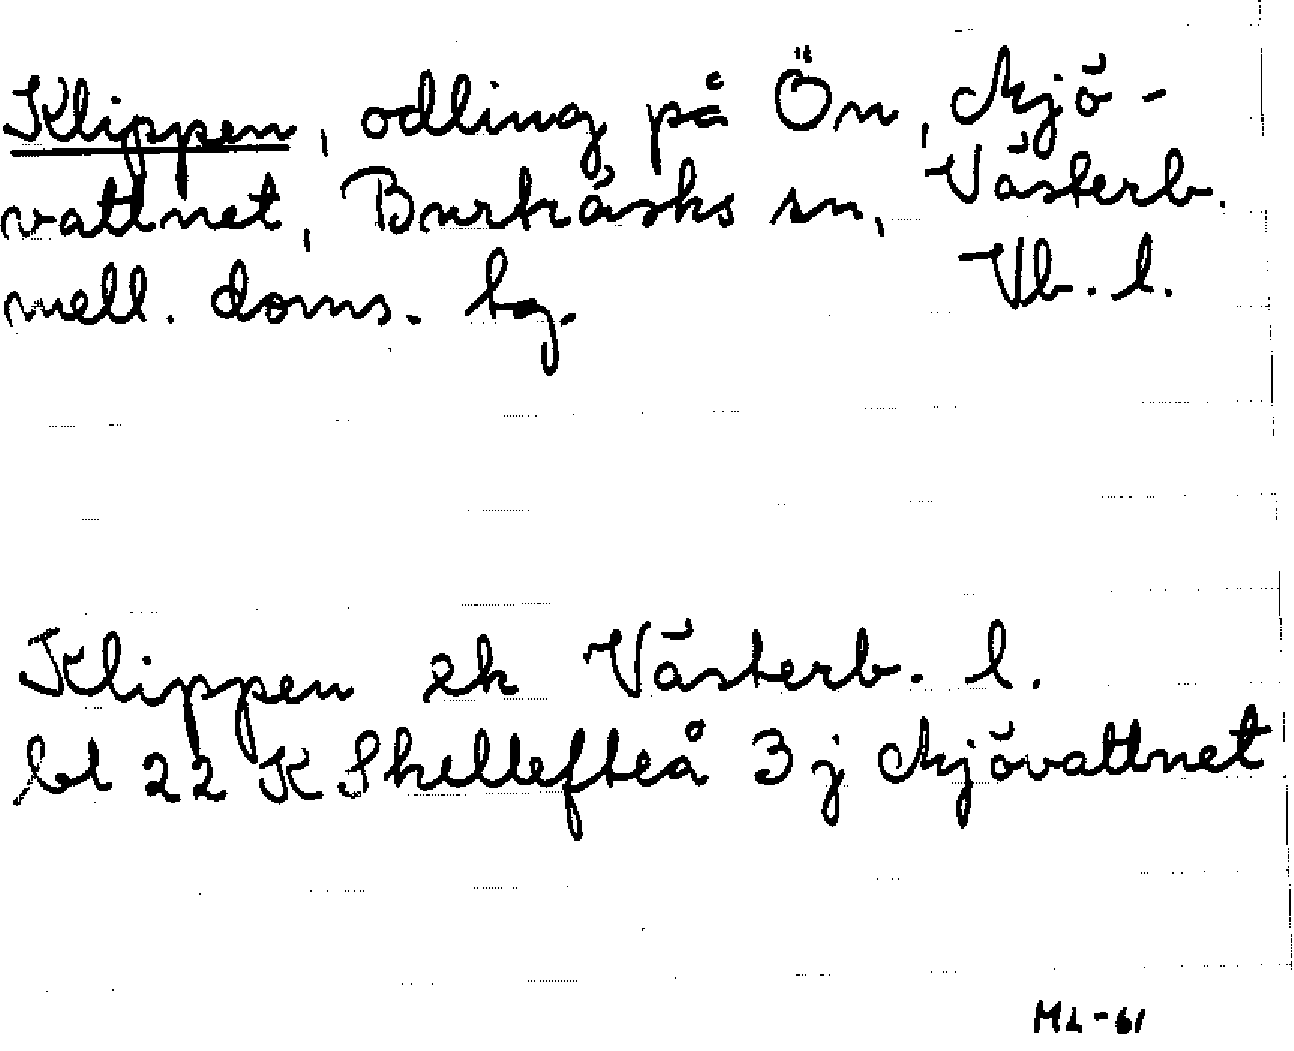 Klippen, odling på Ön, Mjö-
vattnet, Burträsks sn, Västerb.
mell. doms. bg. Vb. l.
Klippen ek Västerb. l.
bl 22 K Skellefteå 3 j Mjövattnet
ML-61